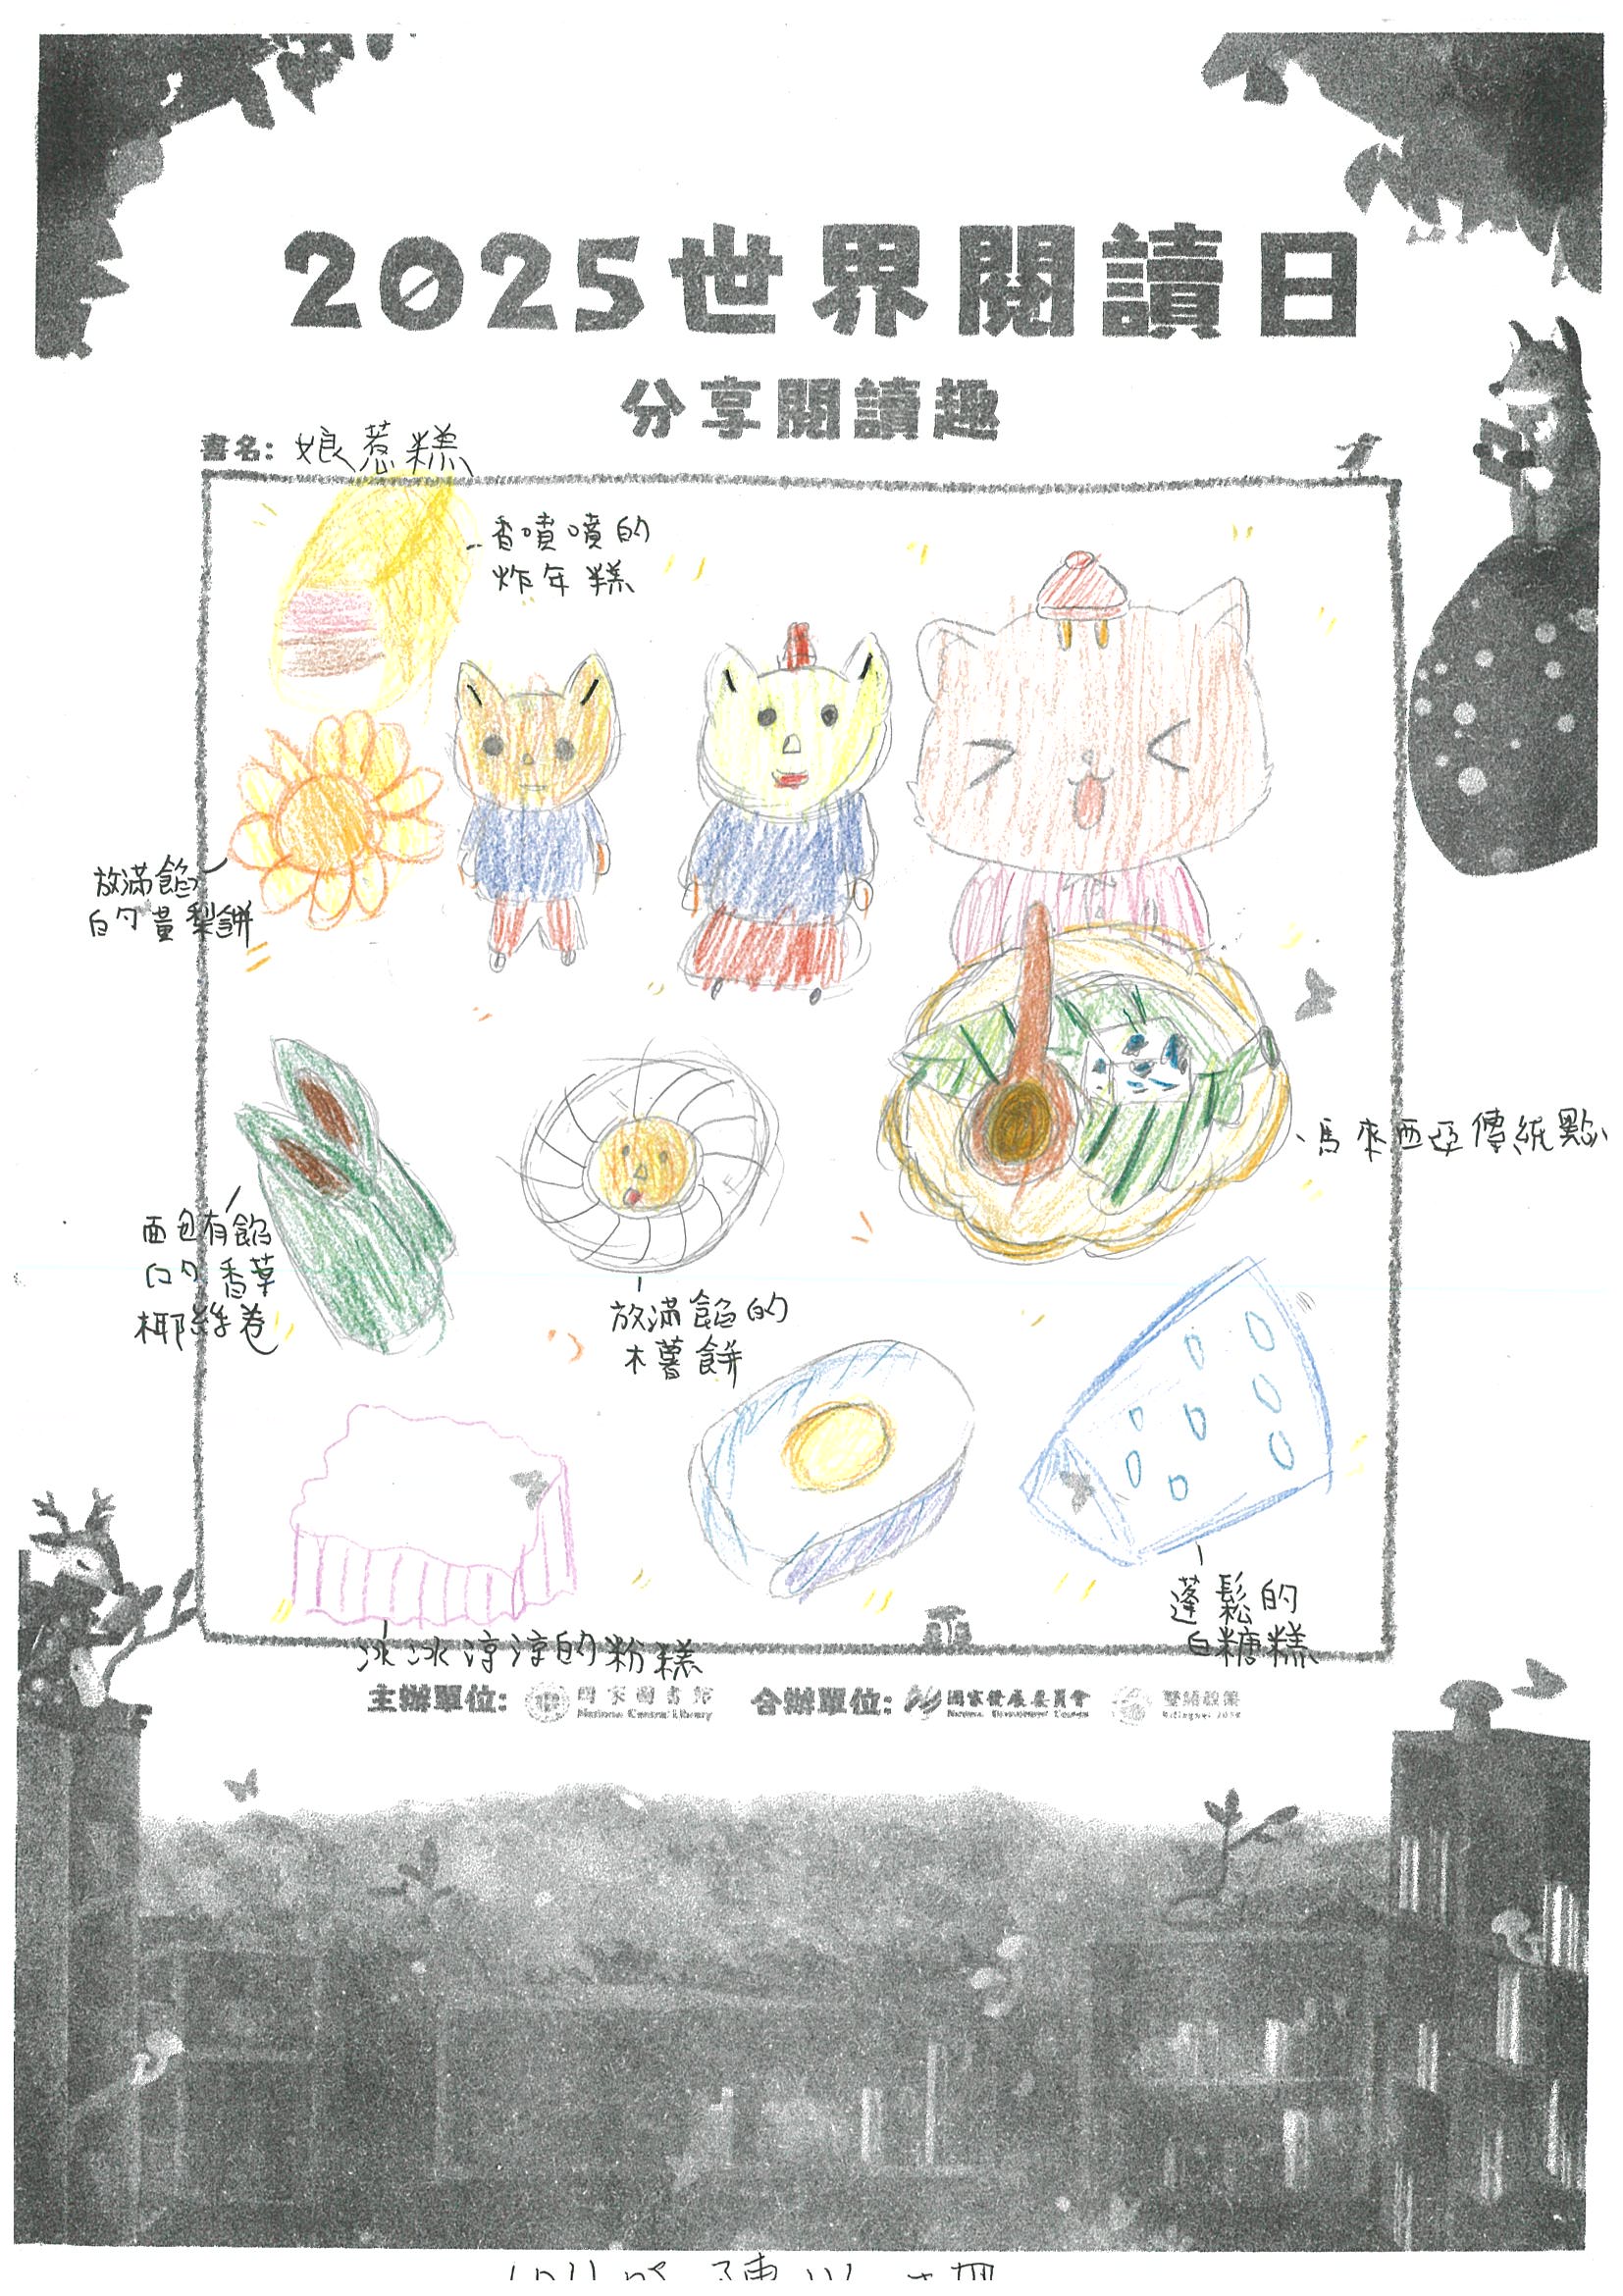 2025世界閱讀日
分享閱讀趣
書名: 娘惹糕
香噴噴的
炸年糕
放滿餡
的黃梨餅
馬來西亞傳統點心
面包有餡
的香草
椰絲卷
放滿餡的
木薯餅
蓬鬆的
白糖糕
冰冰涼涼的粉糕
主辦單位: 國家圖書館 合辦單位: 國家發展委員會 雙語政策
National Central Library National Development Council Bilingual 2030